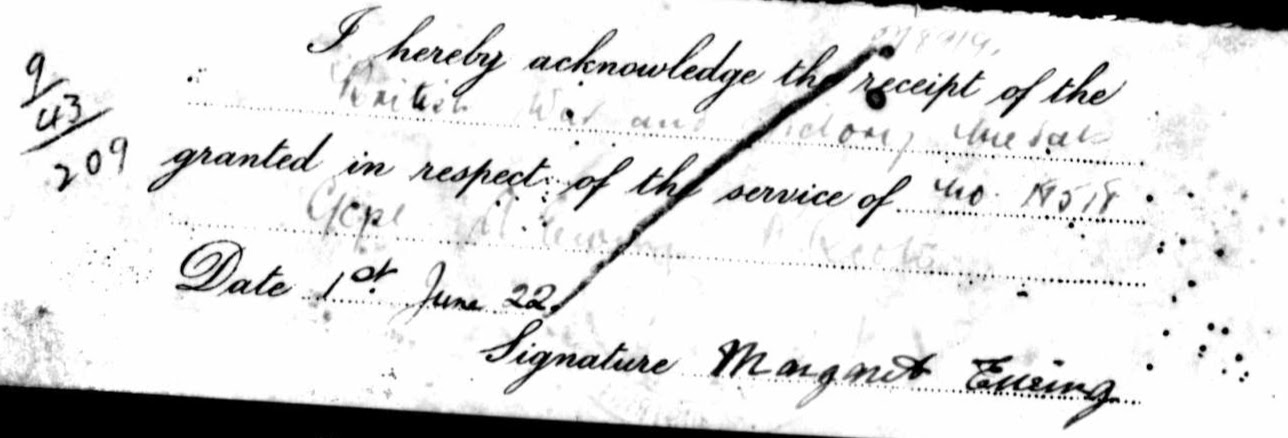 I hereby acknowledge the receipt of the
British War and Victory Medals
granted in respect of the service of No
Date 1st June 22.
Signature Margaret Ewing
9/43/209